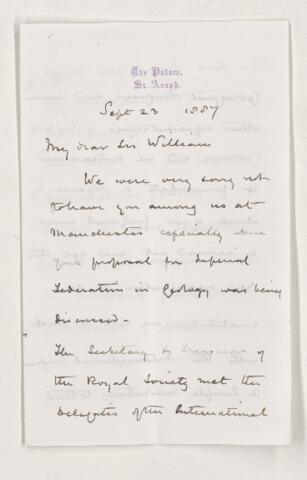 The Palace,
St. Asaph.
Sept 23 1887
My dear Sir William
We were very sorry not
to have you among us at
Manchester especially when
your proposal for Imperial
Federation in Geology was being
discussed –
The Secretary & Treasurer of
the Royal Society met the
Delegates of the International